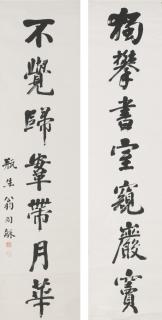 獨攀書室窺巖竇
不覺歸鞌帶月華
瓶生翁同龢